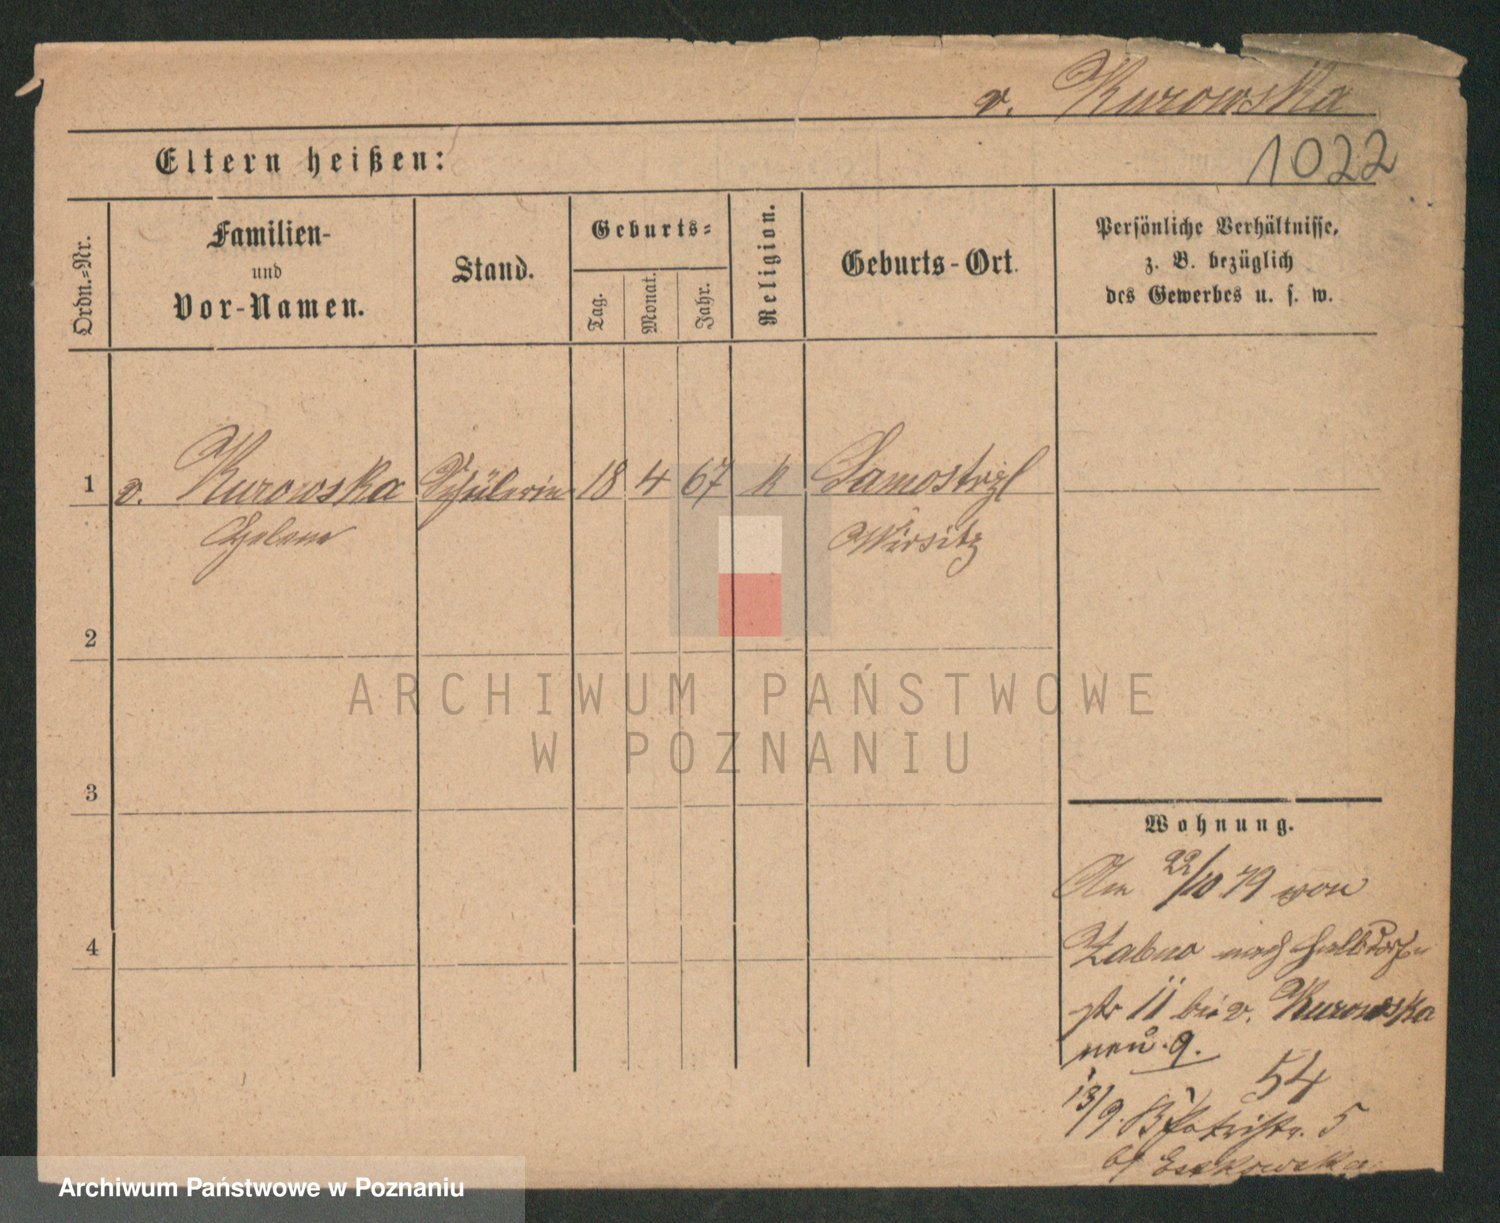 v. Kurowska
1022
Eltern heißen:
Ordn.-Nr.
Familien-
und
Vor-Namen.
Stand.
Geburts-
Tag.
Monat.
Jahr.
Religion.
Geburts-Ort.
Persönliche Verhältnisse,
z. B. bezüglich
des Gewerbes u. s. w.
1 v. Kurowska Schülerin 18 4 67 k Samostrzel
Helene Wirsitz
2
3
4
Wohnung.
Am 22/10 79 von
Zabno nach Halbdorf-
str 11 bei v. Kurowska
neu 9.
54
13/9. Petristr. 5
ARCHIWUM PAŃSTWOWE
W POZNANIU
Archiwum Państwowe w Poznaniu